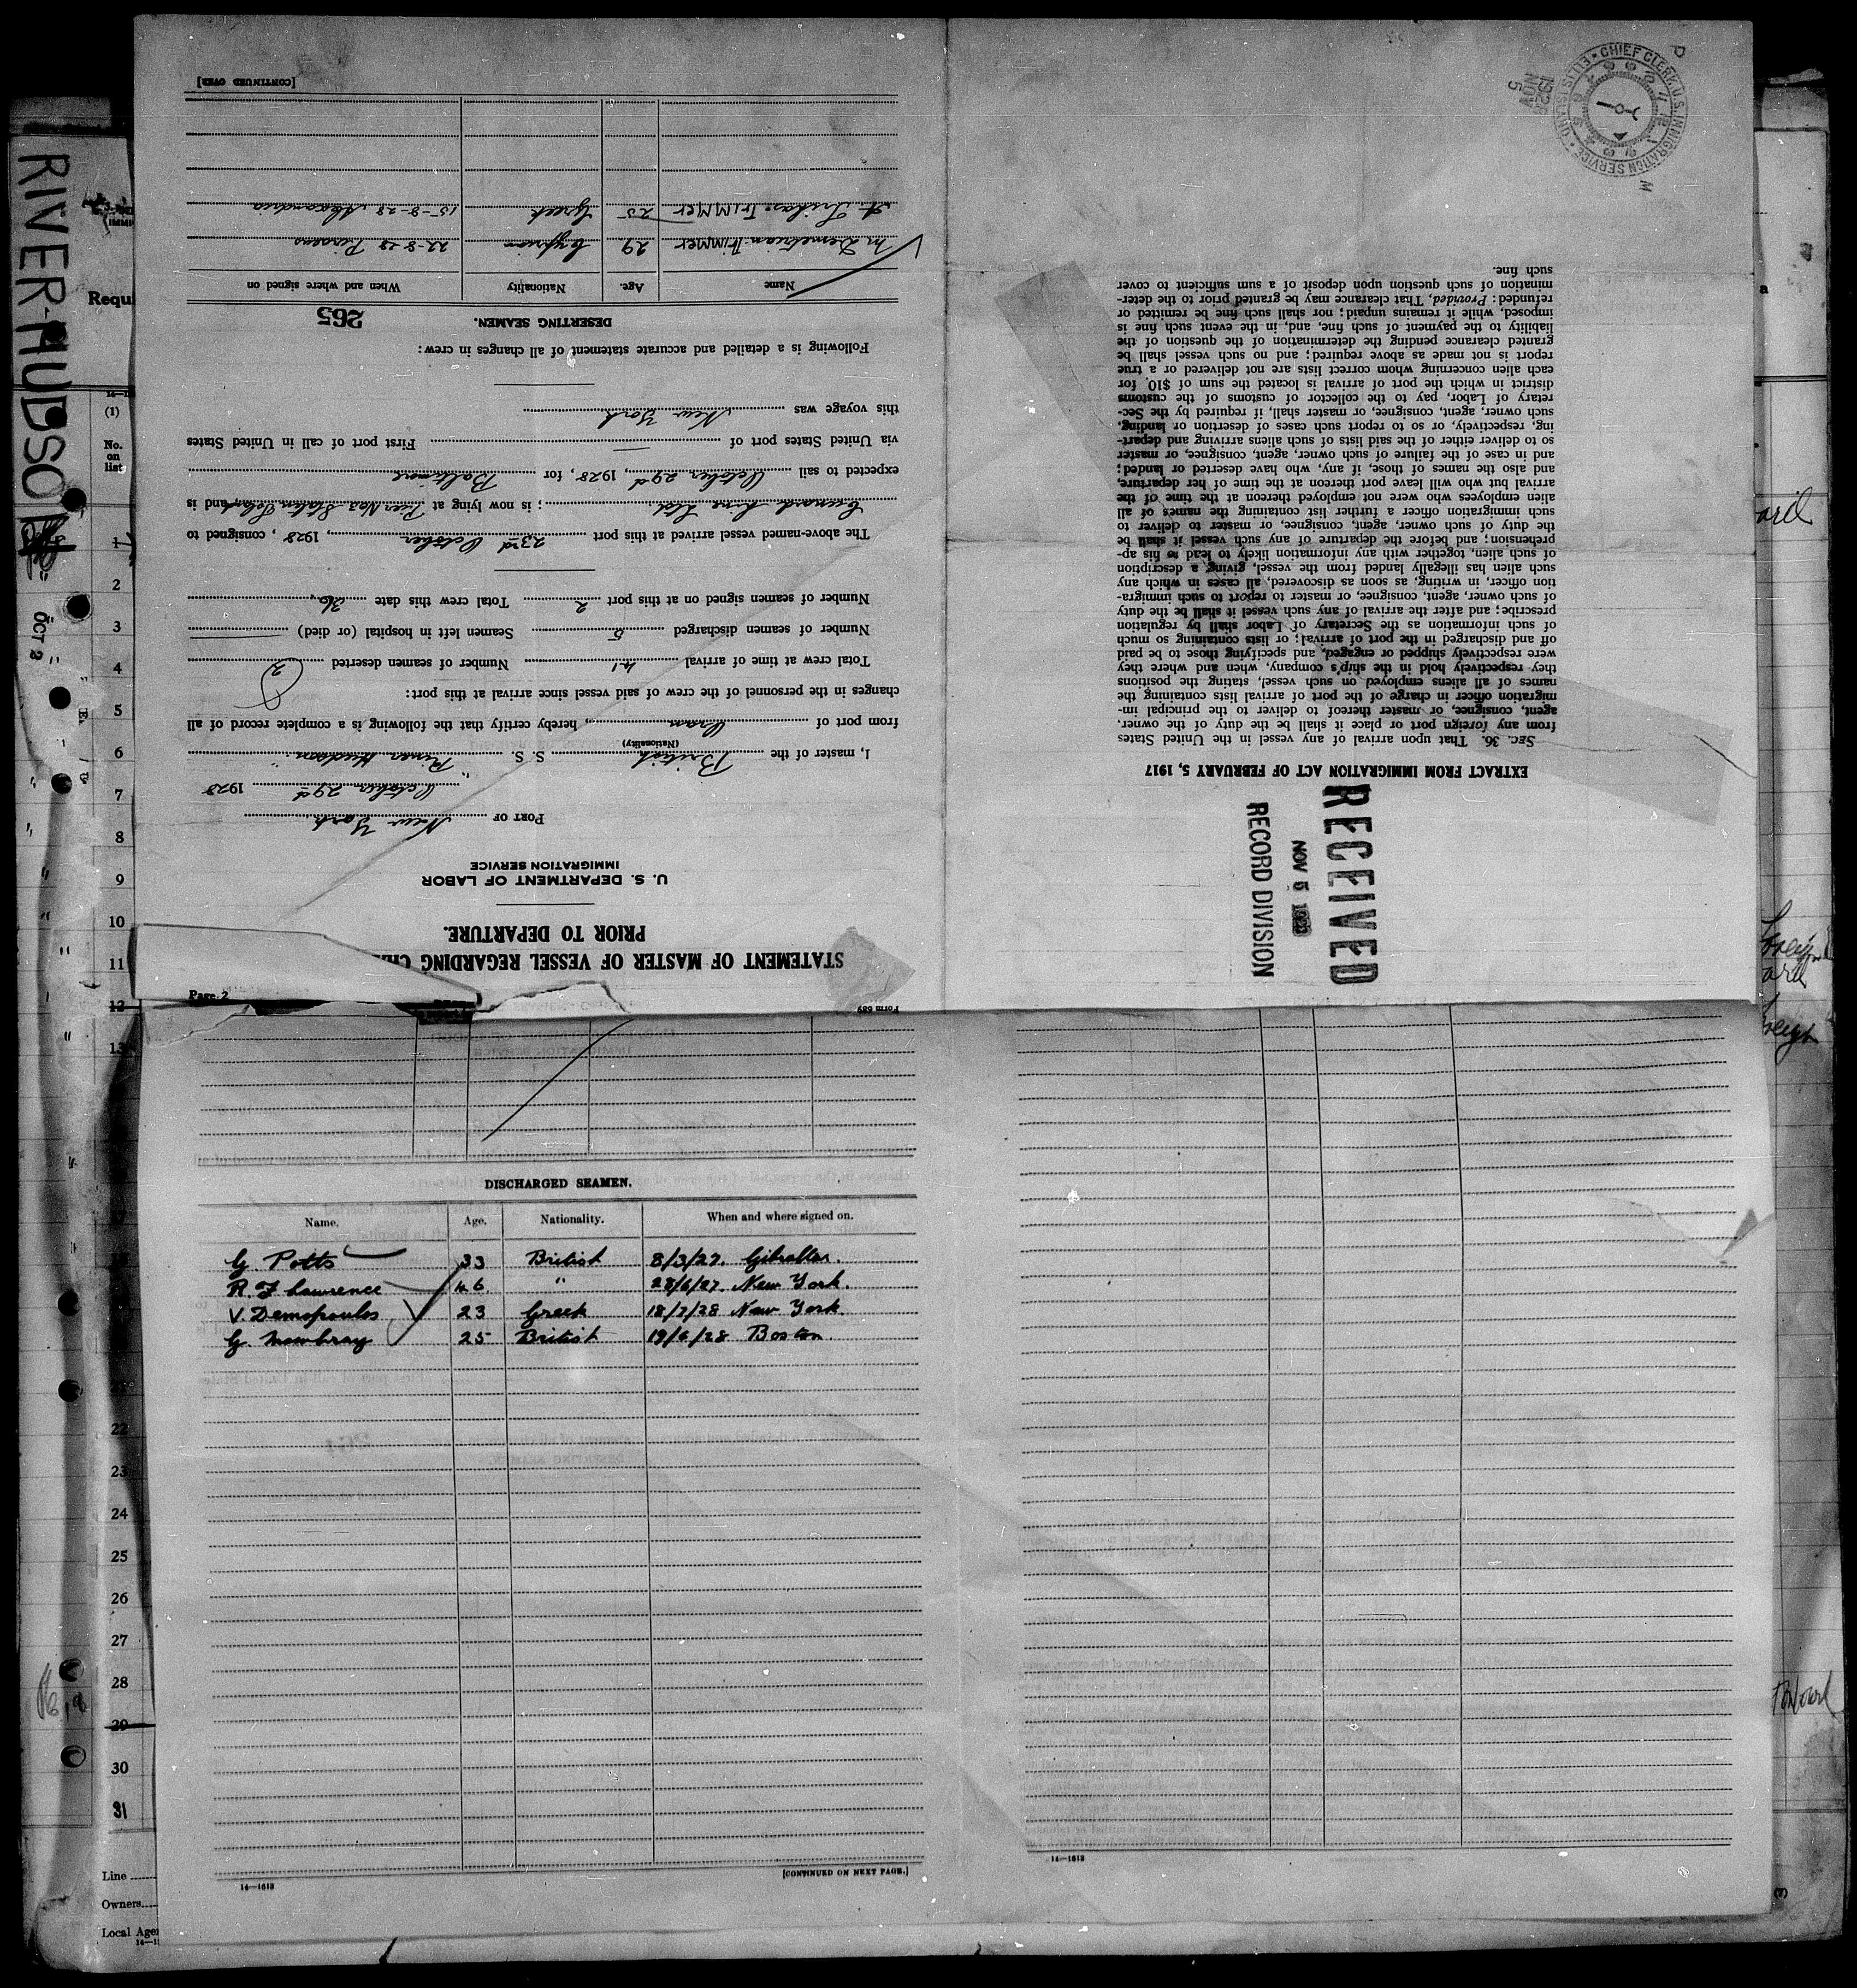 RIVER-HUDSON
Requ
(1)
No.
on
list
OCT 2
1
2
3
4
5
6
7
8
9
10
11
12
13
22
23
24
25
26
27
28
29
30
31
Line
Owners
Local Age
Form 689
STATEMENT OF MASTER OF VESSEL REGARDING CH
PRIOR TO DEPARTURE.
U. S. DEPARTMENT OF LABOR
IMMIGRATION SERVICE
PORT OF New York
October 29th 1928
I, master of the British S. S. "River Hudson"
(Nationality)
from port of , hereby certify that the following is a complete record of all
changes in the personnel of the crew of said vessel since arrival at this port:
Total crew at time of arrival 41 Number of seamen deserted 2
Number of seamen discharged 5 Seamen left in hospital (or died)
Number of seamen signed on at this port 2 Total crew this date 36
The above-named vessel arrived at this port 23rd October, 1928, consigned to
Cunard Line Ltd.; is now lying at Pier No 3 Staten Island, and is
expected to sail October 29th, 1928, for Baltimore
via United States port of First port of call in United States
this voyage was New York
Following is a detailed and accurate statement of all changes in crew:
DESERTING SEAMEN. 265
Name Age. Nationality When and where signed on
M. Demetrian Trimmer 29 Cyprian 22-8-28 Piraeus
A. Trimmer 25 Greek 15-8-28 Alexandria
[CONTINUED OVER]
RECEIVED
NOV 5 1928
RECORD DIVISION
EXTRACT FROM IMMIGRATION ACT OF FEBRUARY 5, 1917
SEC. 36. That upon arrival of any vessel in the United States
from any foreign port or place it shall be the duty of the owner,
agent, consignee, or master thereof to deliver to the principal im-
migration officer in charge of the port of arrival lists containing the
names of all aliens employed on such vessel, stating the positions
they respectively hold in the ship's company, when and where they
were respectively shipped or engaged, and specifying those to be paid
off and discharged in the port of arrival; or lists containing so much
of such information as the Secretary of Labor shall by regulation
prescribe; and after the arrival of any such vessel it shall be the duty
of such owner, agent, consignee, or master to report to such immigra-
tion officer, in writing, as soon as discovered, all cases in which any
such alien has illegally landed from the vessel, giving a description
of such alien, together with any information likely to lead to his ap-
prehension; and before the departure of any such vessel it shall be
the duty of such owner, agent, consignee, or master to deliver to
such immigration officer a further list containing the names of all
alien employees who were not employed thereon at the time of the
arrival but who will leave port thereon at the time of her departure,
and also the names of those, if any, who have deserted or landed;
and in case of the failure of such owner, agent, consignee, or master
so to deliver either of the said lists of such aliens arriving and depart-
ing, respectively, or so to report such cases of desertion or landing,
such owner, agent, consignee, or master shall, if required by the Sec-
retary of Labor, pay to the collector of customs of the customs
district in which the port of arrival is located the sum of $10, for
each alien concerning whom correct lists are not delivered or a true
report is not made as above required; and no such vessel shall be
granted clearance pending the determination of the question of the
liability to the payment of such fine, and, in the event such fine is
imposed, while it remains unpaid; nor shall such fine be remitted or
refunded: Provided, That clearance may be granted prior to the deter-
mination of such question upon deposit of a sum sufficient to cover
such fine.
CHIEF CLERK, U.S. IMMIGRATION SERVICE
1928
NOV
5
Page 2
DISCHARGED SEAMEN.
Name. Age. Nationality. When and where signed on.
G. Potts 33 British 8/3/27. Gibraltar.
R. F Lawrence 46 " 28/6/27. New York.
V. Demopoulos 23 Greek 18/7/28 New York.
G. Mowbray 25 British 19/6/28 Boston
[CONTINUED ON NEXT PAGE.]
14—1613
14—1613